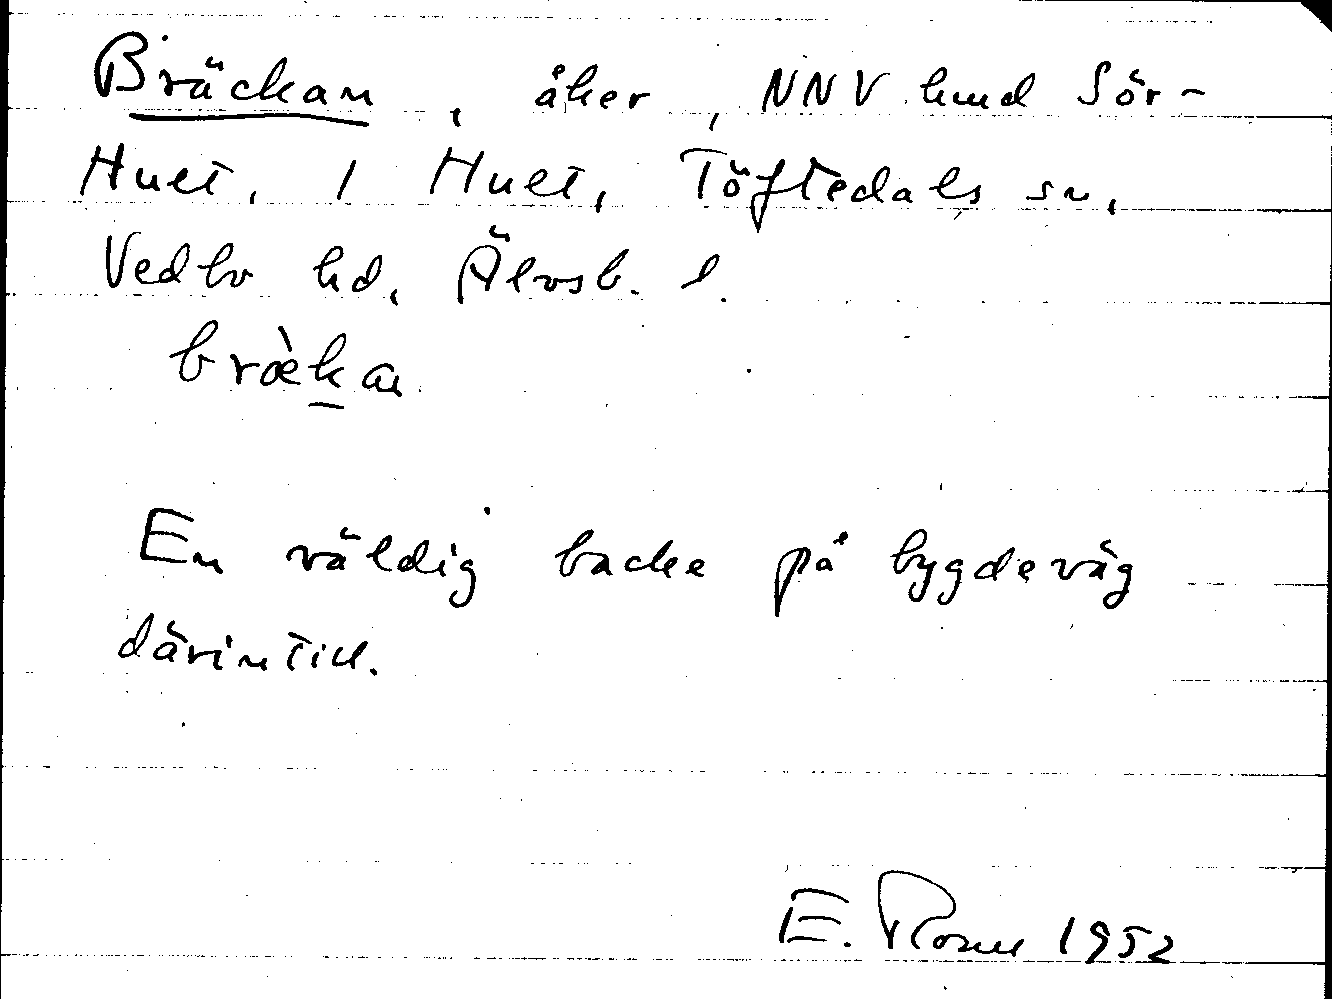 Bräckan, åker, NNV hmd Sör-
Huet, 1 Huet, Töftedals sn,
Vedbo hd, Älvsb. l.
bræ̀kan
En väldig backe på bygdeväg
därintill.
E. 1952